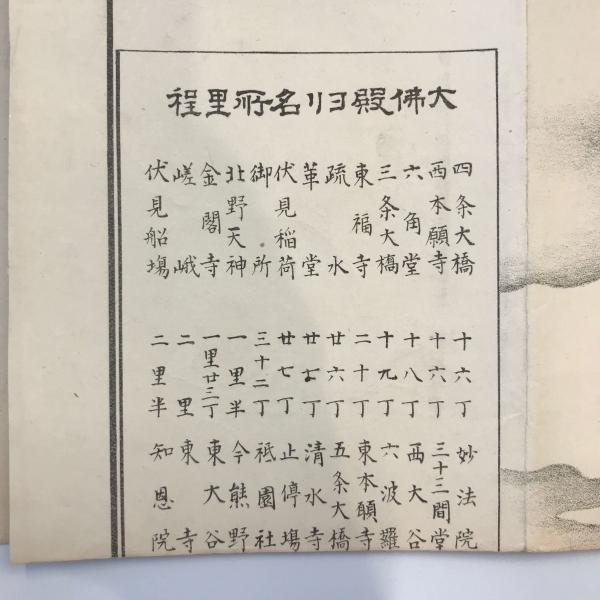 大佛殿ヨリ名所里程
四条大橋 十六丁
西本願寺 十六丁
六角堂 十八丁
三条大橋 十九丁
東福寺 二十丁
疏水 廿六丁
革堂 廿七丁
伏見稲荷 廿七丁
御所 三十二丁
北野天神 一里半
金閣寺 一里廿三丁
嵯峨 二里
伏見船塲 二里半
妙法院
三十三間堂
西大谷
六波羅
東本願寺
五条大橋
清水寺
止停塲
祗園社
今熊野
東大谷
東寺
知恩院